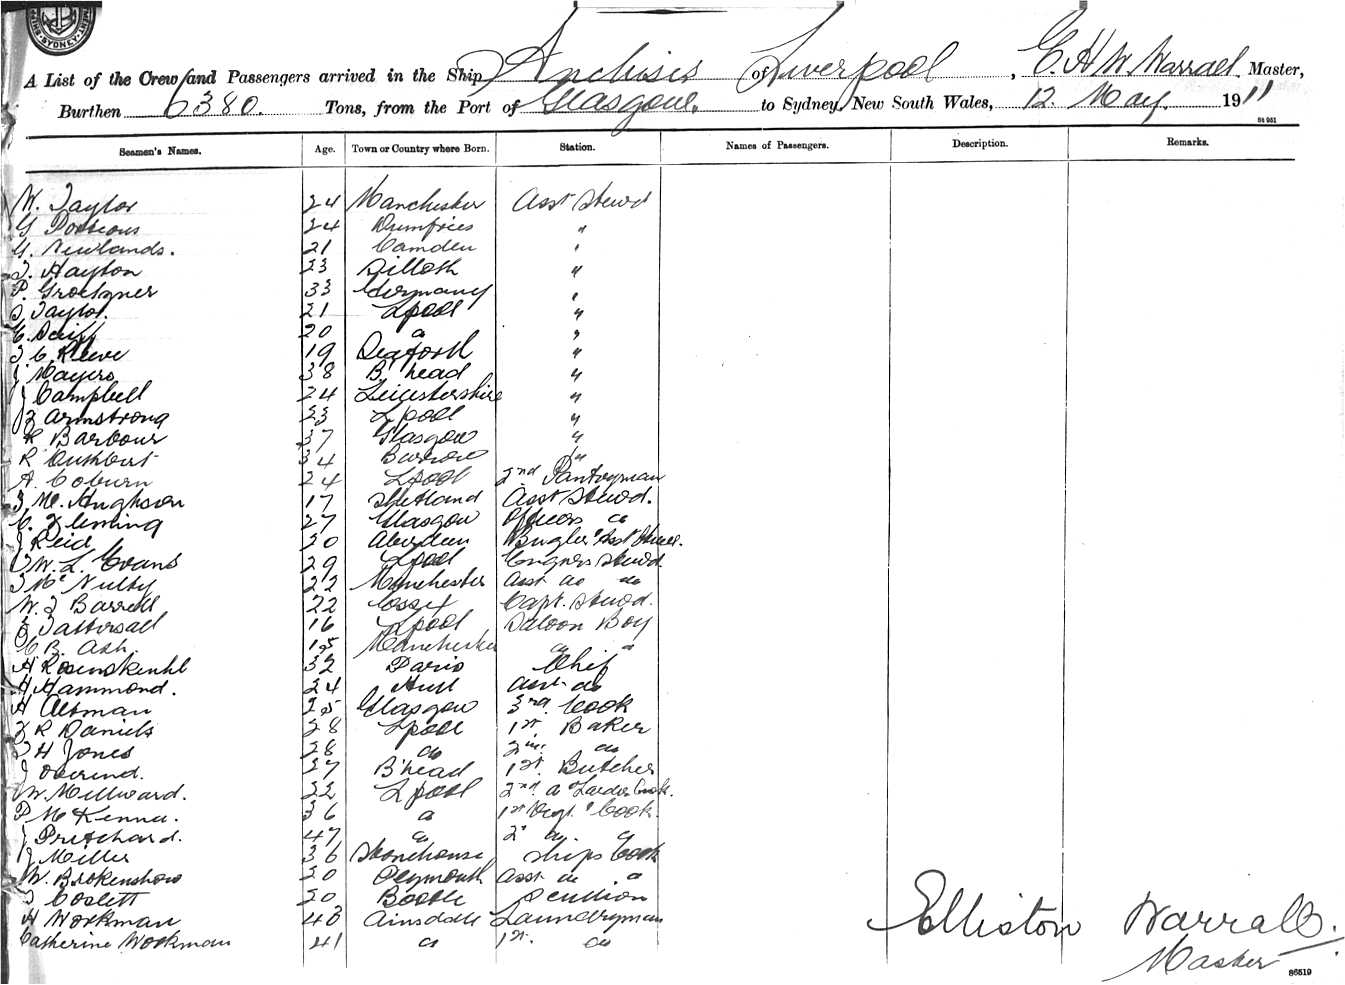 SYDNEY
A List of the Crew and Passengers arrived in the Ship Anchises of Liverpool, C. H. W. Warrall, Master,
Burthen 6380. Tons, from the Port of Glasgow. to Sydney, New South Wales, 12. May. 1911
84 951
Seamen's Names. Age. Town or Country where Born. Station. Names of Passengers. Description. Remarks.
W. Taylor 24 Manchester Asst Stewd
G Porteous 24 Dumfries "
G. Newlands. 21 Camden "
T. Hayton 23 Silloth "
P. 33 Germany "
S Taylor. 21 Lpool "
20 do "
T C Reeve 19 Seaforth "
J Mayers 38 B'head "
J Campbell 24 Leicestershire "
J Armstrong 23 Lpool "
R Barbour 37 Glasgow "
R Cuthbert 34 Barrow "
A. Coburn 24 Lpool 2nd Pantryman
J. M. Hughson 17 Shetland Asst Stewd.
C. Fleming 27 Glasgow Officers do
J Reid 20 Aberdeen Bugler & Asst Stewd.
W. L. Evans 29 Lpool Engnrs Stewd
J McNulty 22 Manchester Asst do do
W. J Barrell 22 Essex Capt. Stewd.
J Tattersall 16 Lpool Saloon Boy
C B. Ash. 15 Manchester do "
H Rosenskenhl 32 Paris Chef
H Hammond. 24 Hull Asst do
H Altman 25 Glasgow 3rd. Cook
J R Daniels 28 Lpool 1st. Baker
T H Jones 28 do 2nd. do
J Overind. 27 B'head 1st. Butcher
W. Millward. 22 Lpool 2nd. & Larder Cook.
P McKenna. 36 do 1st Vegt. Cook.
J Pritchard. 47 do 2nd do. do
J Miller 36 Stonehouse Ships Cook
W. Brokenshow 20 Plymouth Asst do do
J Coslett 20 Bootle Scullion
H Workman 43 Ainsdale Laundryman
Catherine Workman 41 do 1st. do
Elliston Warrall.
Master
86519